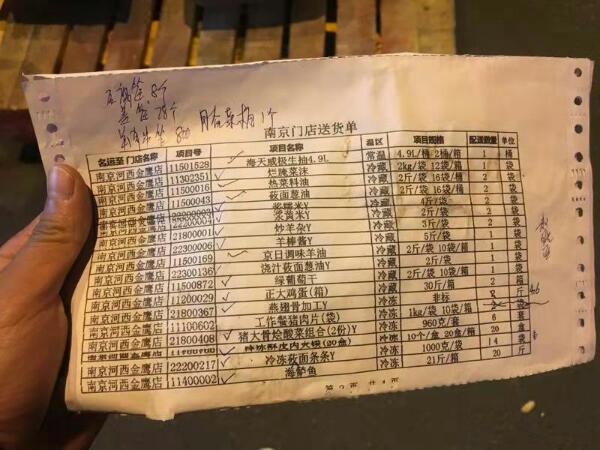 南京门店送货单
名运至门店名称 项目号 项目名称 温区 项目规格 配送数量 单位
南京河西金鹰店 11501529 海天威极生抽4.9L 常温 4.9L/桶 2桶/箱 1 桶
南京河西金鹰店 11302351 烂腌菜沫 冷藏 2kg/袋 12袋/箱 1 袋
南京河西金鹰店 11500016 热菜料油 冷藏 2斤/袋 16袋/箱 1 袋
南京河西金鹰店 11500043 莜面葱油 冷藏 2斤/袋 16袋/桶 2 袋
浆糯米Y 冷藏 4斤/袋 2 袋
南京河西金鹰店 22200031 浆黄米Y 冷藏 2斤/袋 2 袋
南京河西金鹰店 21800001 炒羊杂Y 冷藏 3斤/袋 2 袋
南京河西金鹰店 22300006 羊棒酱Y 冷藏 5斤/袋 1 袋
南京河西金鹰店 11500169 京日调味羊油 冷藏 2斤/袋 10袋/箱 1 袋
南京河西金鹰店 22300136 浇汁莜面葱油Y 冷藏 2斤/袋 1 袋
南京河西金鹰店 11500872 绿葡萄干 冷藏 2斤/袋 10袋/箱 2 袋
南京河西金鹰店 11200029 正大鸡蛋(箱) 冷藏 30斤/箱 2 箱
南京河西金鹰店 21800367 燕翅骨加工Y 冷冻 非标 斤
南京河西金鹰店 11100602 工作餐猪肉片(袋) 冷冻 1kg/袋 10袋/箱 袋
南京河西金鹰店 21800408 猪大骨烩酸菜组合(2份)Y 冷冻 960克/套 6 套
冷冻 10个/盒 20盒/箱 盒
南京河西金鹰店 22200217 冷冻莜面条条Y 冷冻 1000克/袋 14 袋
南京河西金鹰店 11400002 海鲈鱼 冷冻 21斤/箱 20 斤